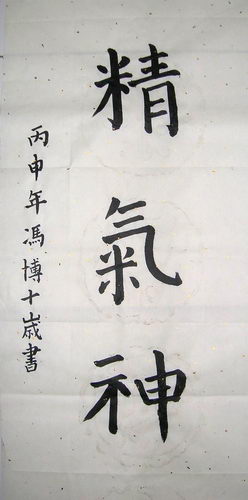 精氣神
丙申年馮博十歲書